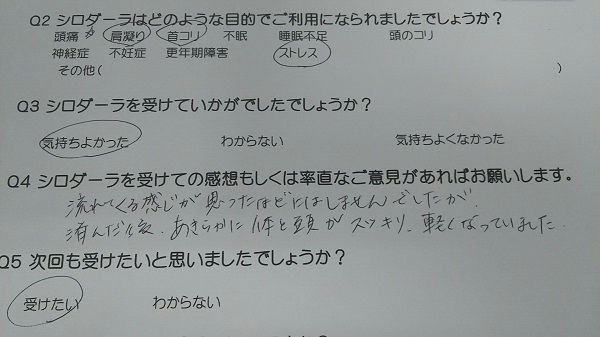 Q2 シロダーラはどのような目的でご利用になられましたでしょうか？
頭痛 肩凝り 首コリ 不眠 睡眠不足 頭のコリ
神経症 不妊症 更年期障害 ストレス
その他( )
Q3 シロダーラを受けていかがでしたでしょうか？
気持ちよかった わからない 気持ちよくなかった
Q4 シロダーラを受けての感想もしくは率直なご意見があればお願いします。
流れてくる感じが思ったほどにはしませんでしたが、
済んだ後、あきらかに体と頭がスッキリ、軽くなっていました。
Q5 次回も受けたいと思いましたでしょうか？
受けたい わからない